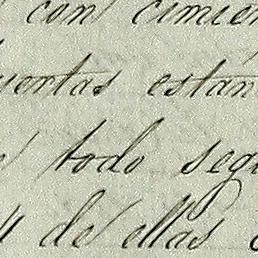 con cimien
uertas están
todo segu
de ellas